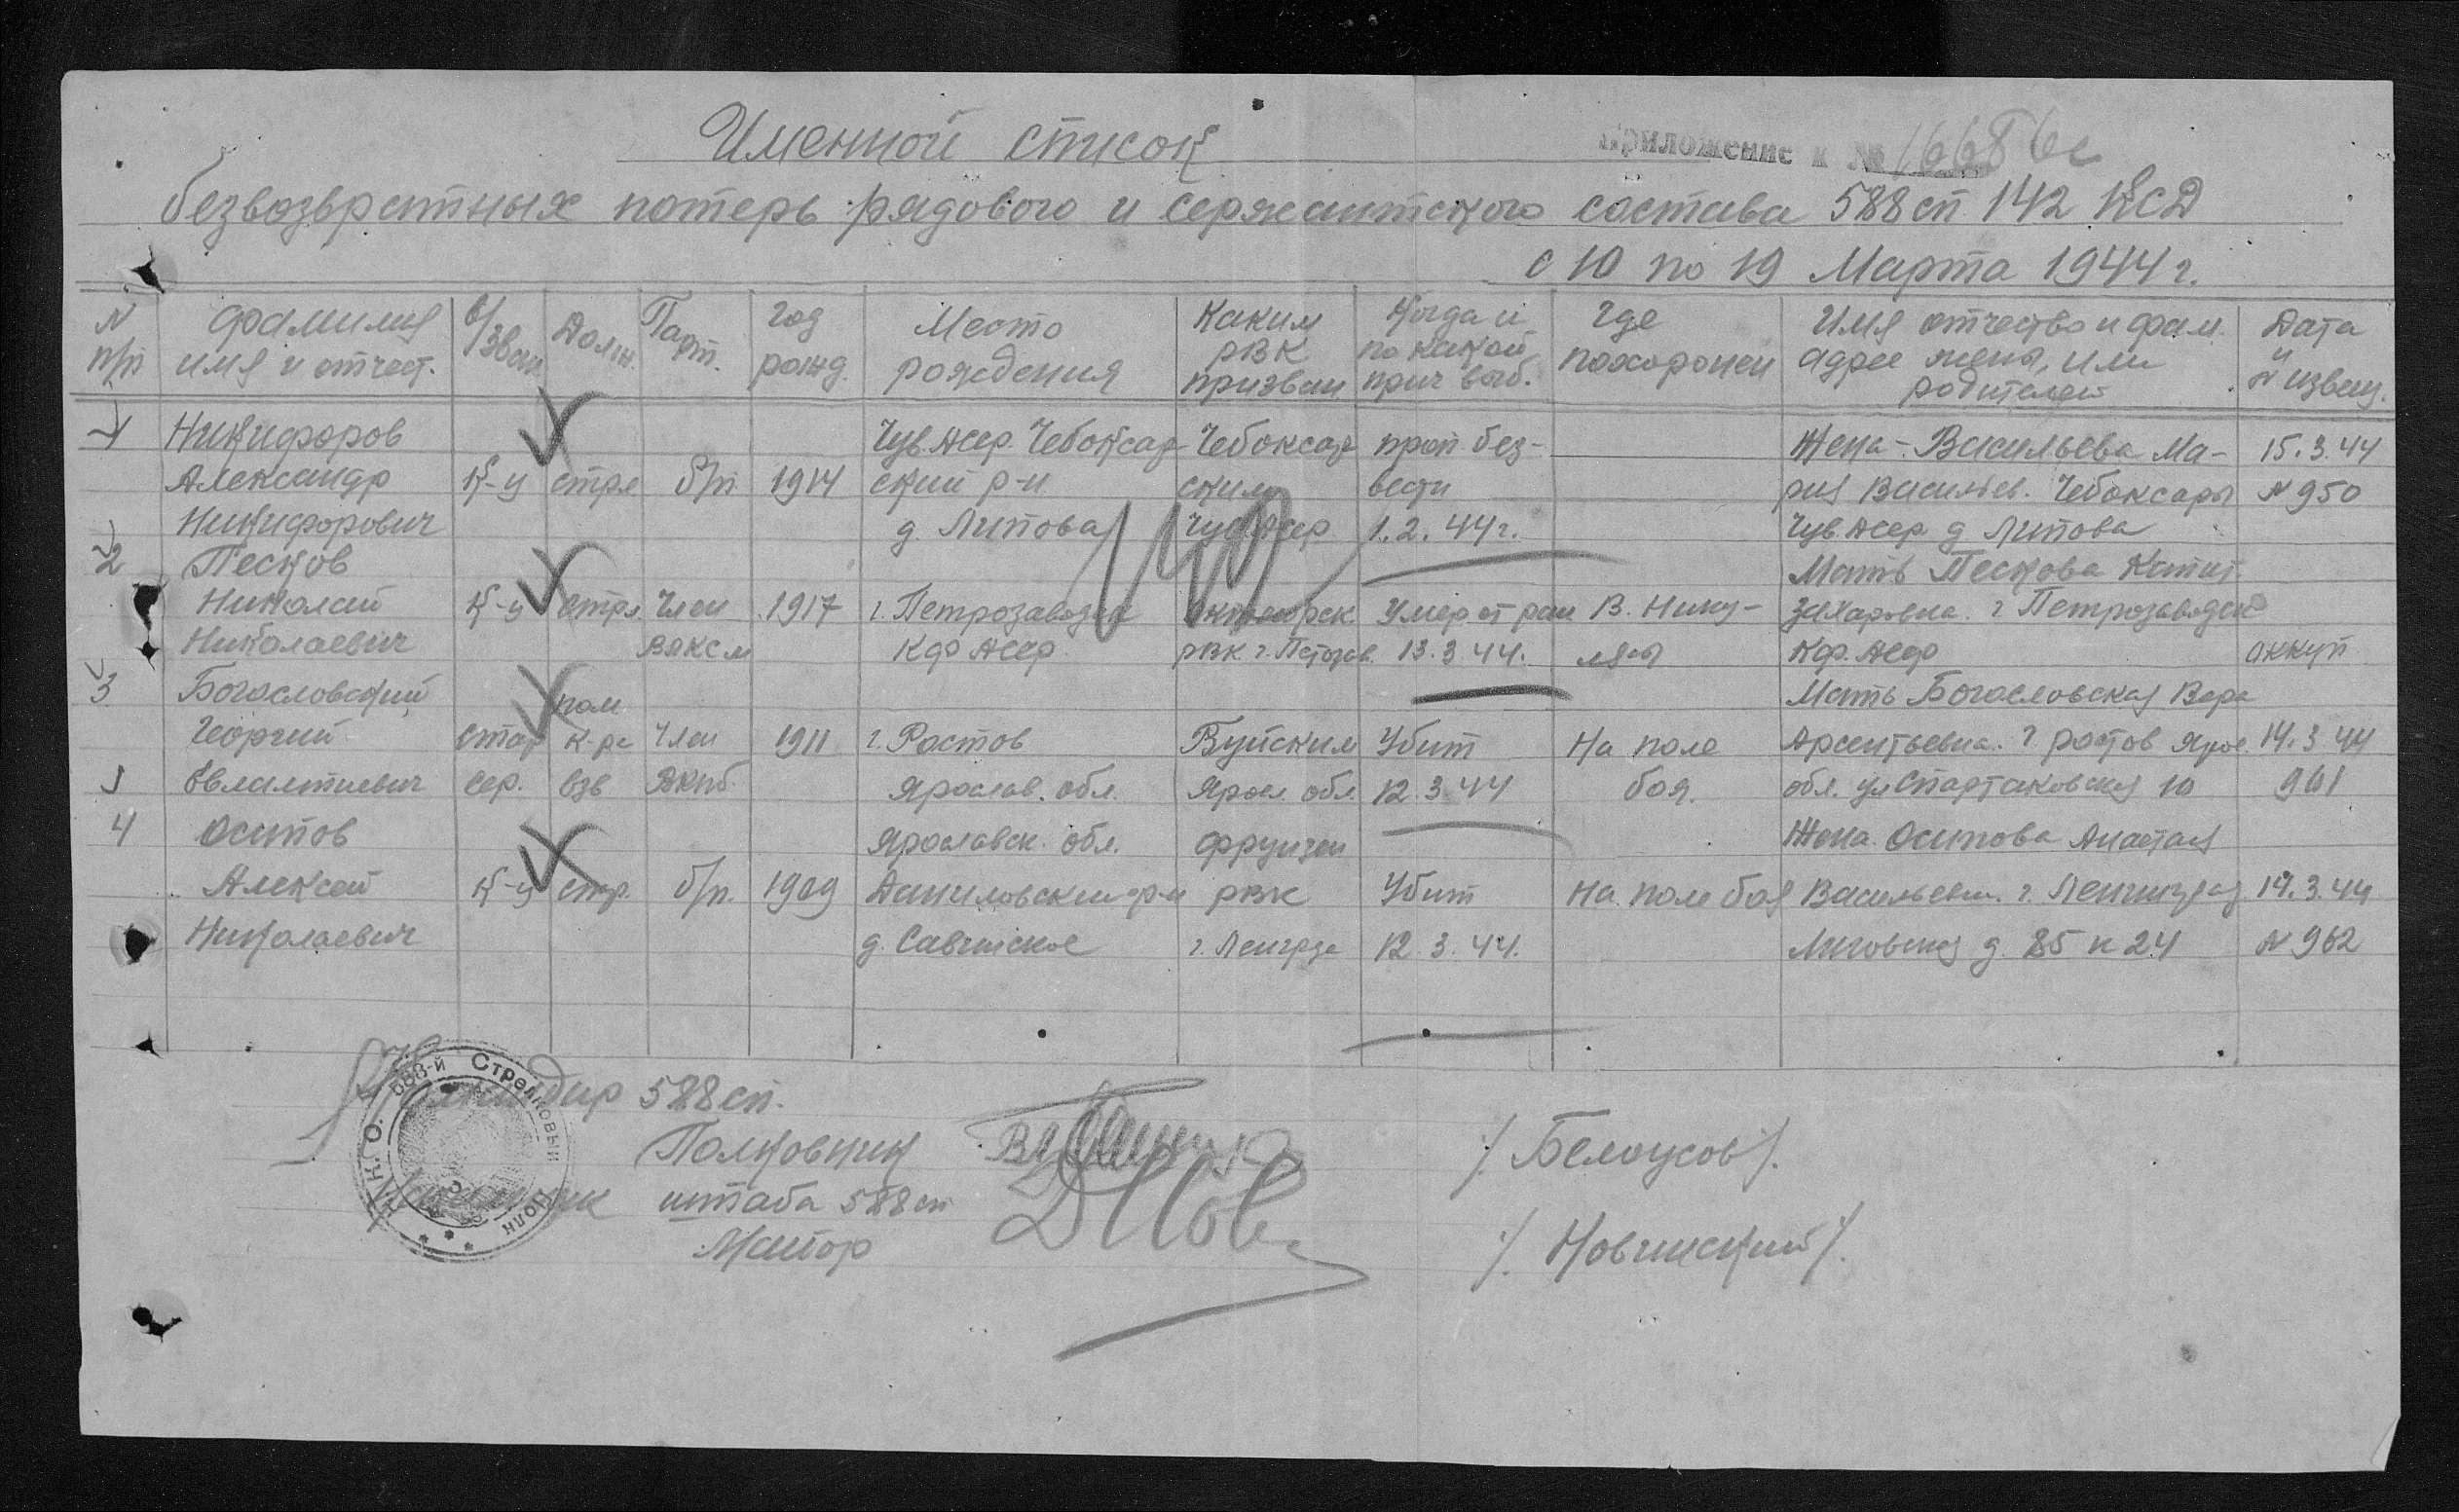 Именной список
Приложение к №
безвозвратных потерь рядового и сержантского состава 588 сп 142 КСД
с 10 по 19 Марта 1944 г.
N п/п
Фамилия имя и отчест.
в/зван.
Должн.
Парт.
Год рожд.
Место рождения
Каким РВК призван
Когда и по какой прич выб.
Где похоронен
Имя отчество и фам. адрес жены, или родителей
Дата и N извещ.
1 Никифоров Чув. Асср. Чебоксар- Чебоксар проп. без- Жена - Васильева Ма- 15.3.44
Александр к-ц стрл б/п 1914 ский р-н ским вести рия Васильев. Чебоксары N 950
Никифорович д. Липова Чув Асср 1.2.44г. Чув. Асср д Липова
2 Песков Мать Пескова
Николай к-ц стрл. Член 1917 г. Петрозаводск Умер от ран В. Нику- Захаровна. г Петрозаводск
Николаевич ВЛКСМ КФ Асср РВК г. 13.3.44. лясы КФ. Асср оккуп
3 Богословский пом Мать Богословская Вера
Георгий стар к-ра Член 1911 г. Ростов Буйским Убит На поле Арсентьевна. г Ростов Яросл. 14.3 44
Евлампиевич сер. взв ВКПб. Ярослав. обл. Яросл. обл. 12 3 44 боя. обл. ул Спартаковская 10 961
4 Осипов Ярославск. обл. Фрунзен Жена. Осипова Анастас
Алексей к-ц стр. б/п. 1909 Даниловский р-н РВК Убит На поле боя Васильевн. г. Ленинград 14.3.44
Николаевич д. г. Ленгра 12.3.44. д. 85 к 24 N 962
Командир 588 сп.
588-й Стрелковый Полк Н.К.О.
Полковник /. Белоусов /.
Начальник штаба 588 сп
Майор /. Новчинский /.